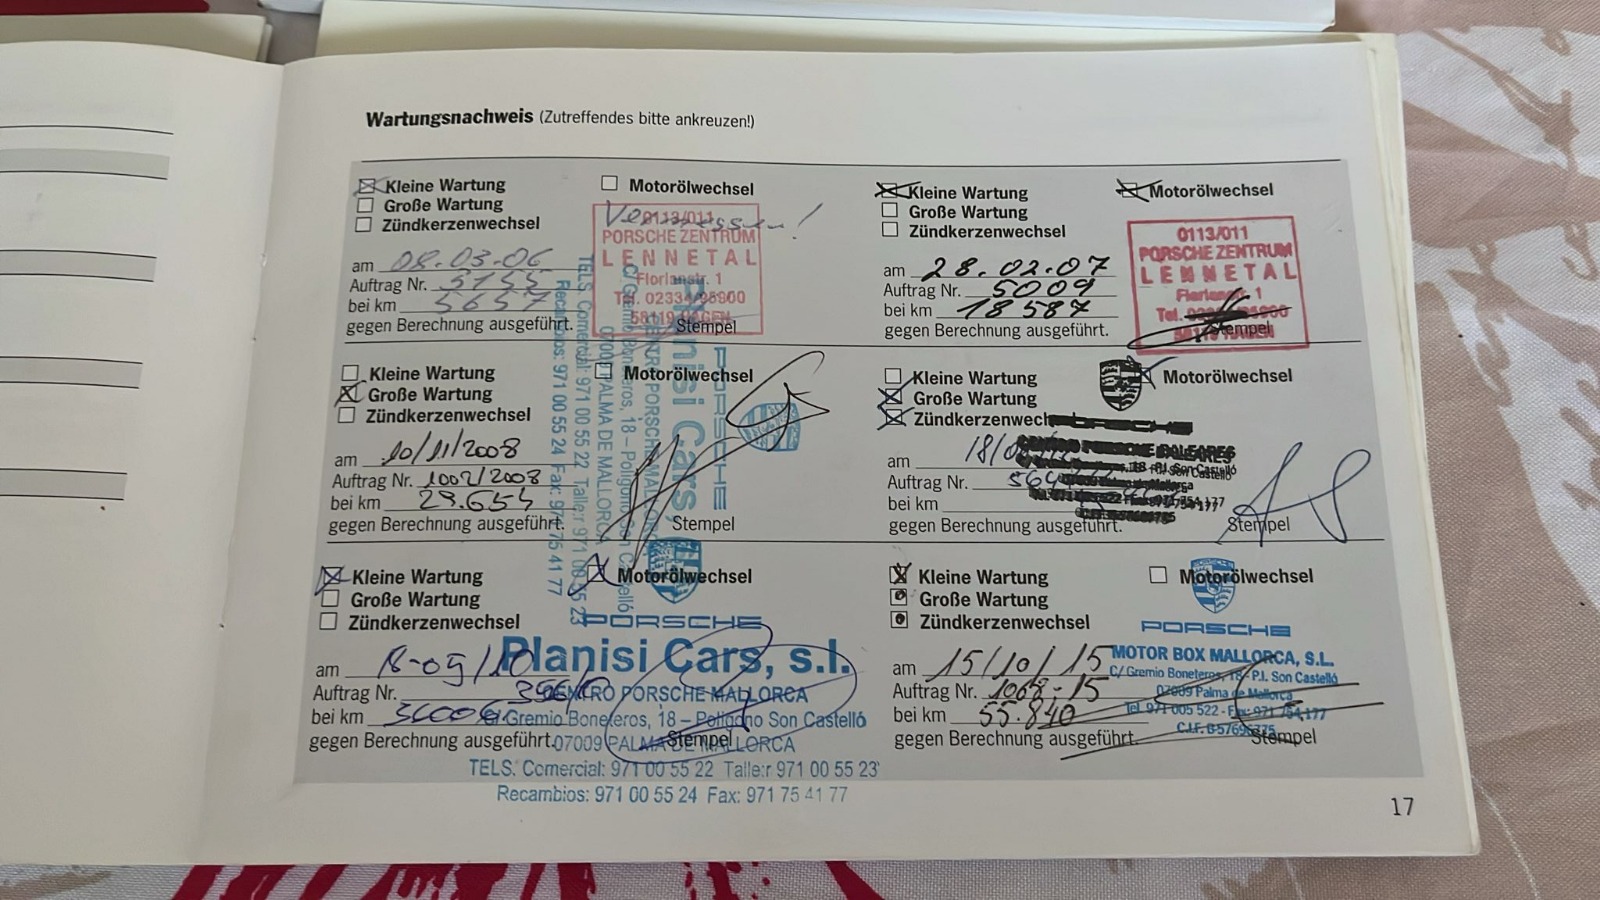 Wartungsnachweis (Zutreffendes bitte ankreuzen!)
Kleine Wartung
Motorölwechsel
Große Wartung
Zündkerzenwechsel
0113/011
PORSCHE ZENTRUM
LENNETAL
Florianstr. 1
Tel. 02334/95800
58119 HAGEN
am 08.03.06
Auftrag Nr. 5155
bei km 5657
gegen Berechnung ausgeführt.
Stempel
Kleine Wartung
Motorölwechsel
Große Wartung
Zündkerzenwechsel
0113/011
PORSCHE ZENTRUM
LENNETAL
Florianstr. 1
Tel.
58119 HAGEN
am 28.02.07
Auftrag Nr. 5009
bei km 18587
gegen Berechnung ausgeführt.
Stempel
Kleine Wartung
Motorölwechsel
Große Wartung
Zündkerzenwechsel
am 10/11/2008
Auftrag Nr. 1002/2008
bei km 29.654
gegen Berechnung ausgeführt.
Stempel
PORSCHE
Planisi Cars,
CENTRO PORSCHE MALLORCA
C/ Gremio Boneteros, 18 – Poligono Son Castelló
07009 PALMA DE MALLORCA
TELS. Comercial: 971 00 55 22 Taller: 971 00 55 23
Recambios: 971 00 55 24 Fax: 971 75 41 77
Kleine Wartung
Motorölwechsel
Große Wartung
Zündkerzenwechsel
PORSCHE
CENTRO PORSCHE BALEARES
18 - P.I. Son Castelló
am 18/
Auftrag Nr.
bei km
gegen Berechnung ausgeführt.
Stempel
Kleine Wartung
Motorölwechsel
Große Wartung
Zündkerzenwechsel
PORSCHE
Planisi Cars, s.l.
CENTRO PORSCHE MALLORCA
C/ Gremio Boneteros, 18 – Poligono Son Castelló
07009 PALMA DE MALLORCA
TELS. Comercial: 971 00 55 22 Talle:r 971 00 55 23
Recambios: 971 00 55 24 Fax: 971 75 41 77
am
Auftrag Nr.
bei km
gegen Berechnung ausgeführt.
Stempel
Kleine Wartung
Motorölwechsel
Große Wartung
Zündkerzenwechsel
PORSCHE
MOTOR BOX MALLORCA, S.L.
C/ Gremio Boneteros, 18 - P.I. Son Castelló
07009 Palma de Mallorca
Tel. 971 005 522 - Fax: 971 754 177
am 15/10/15
Auftrag Nr. 1068-15
bei km 55.840
gegen Berechnung ausgeführt.
Stempel
17